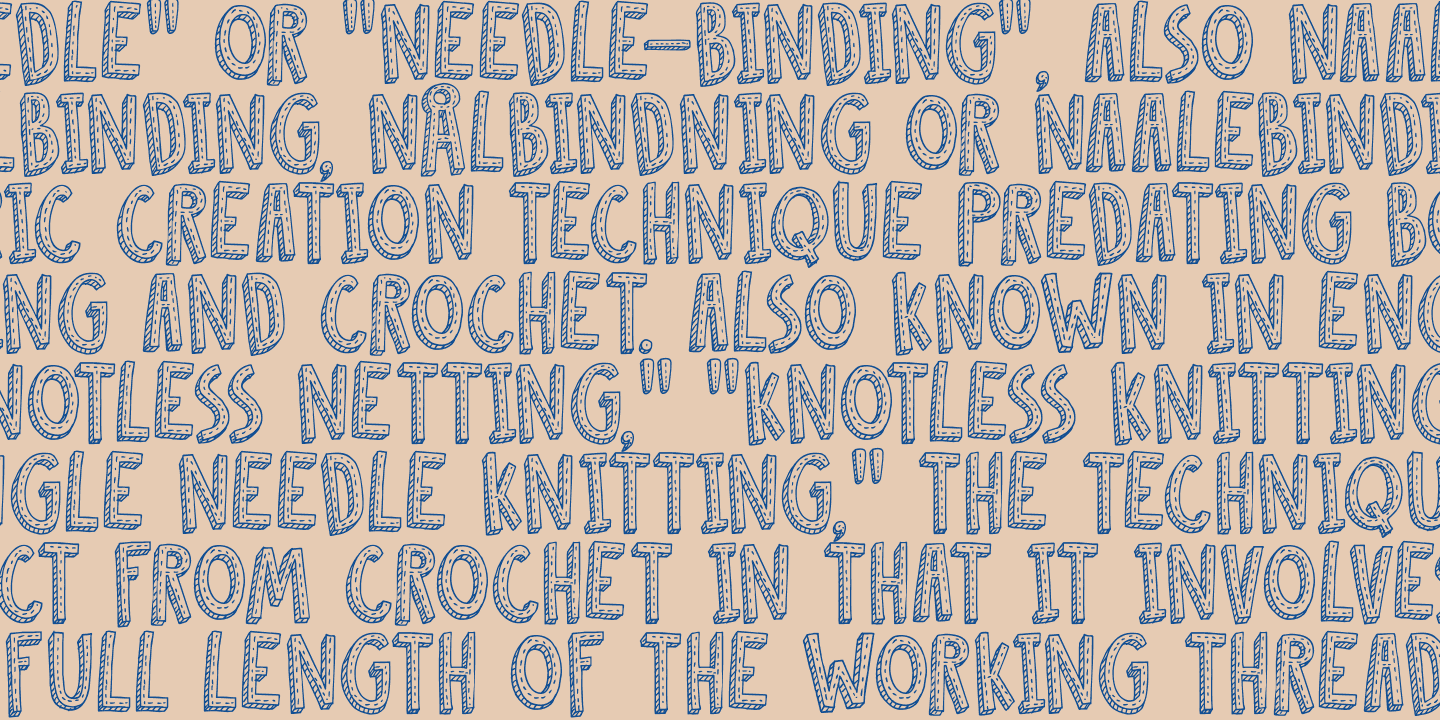 DLE" OR "NEEDLE-BINDING", ALSO NAA
LBINDING, NÅLBINDNING OR NAALEBINDI
RIC CREATION TECHNIQUE PREDATING BO
ING AND CROCHET. ALSO KNOWN IN ENG
NOTLESS NETTING," "KNOTLESS KNITTING
NGLE NEEDLE KNITTING," THE TECHNIQU
CT FROM CROCHET IN THAT IT INVOLVES
FULL LENGTH OF THE WORKING THREAD